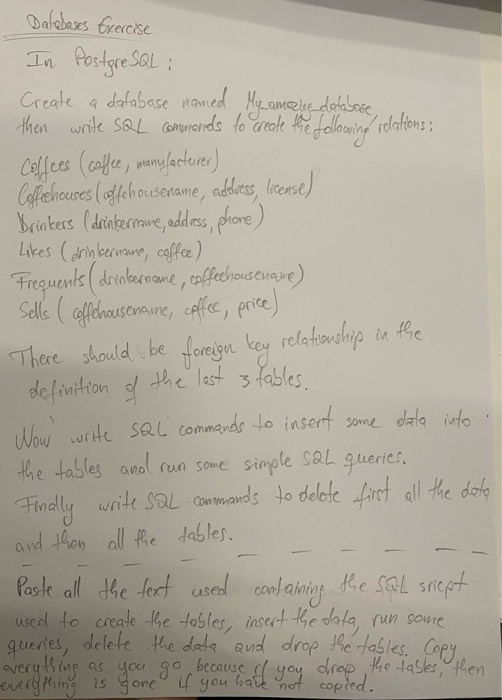 Databases Exercise
In PostgreSQL:
Create a database named My_amazing_database,
then write SQL commands to create the following relations:
Coffees (coffee, manufacturer)
Coffeehouses (coffehousename, address, license)
Drinkers (drinkername, address, phone)
Likes (drinkername, coffee)
Frequents (drinkername, coffeehousename)
Sells (coffehousename, coffee, price)
There should be foreign key relationship in the
definition of the last 3 tables.
Now write SQL commands to insert some data into
the tables and run some simple SQL queries.
Finally write SQL commands to delete first all the data
and then all the tables.
Paste all the text used containing the SQL sricpt
used to create the tables, insert the data, run some
queries, delete the data and drop the tables. Copy
everything as you go because if you drop the tables, then
everything is gone if you have not copied.